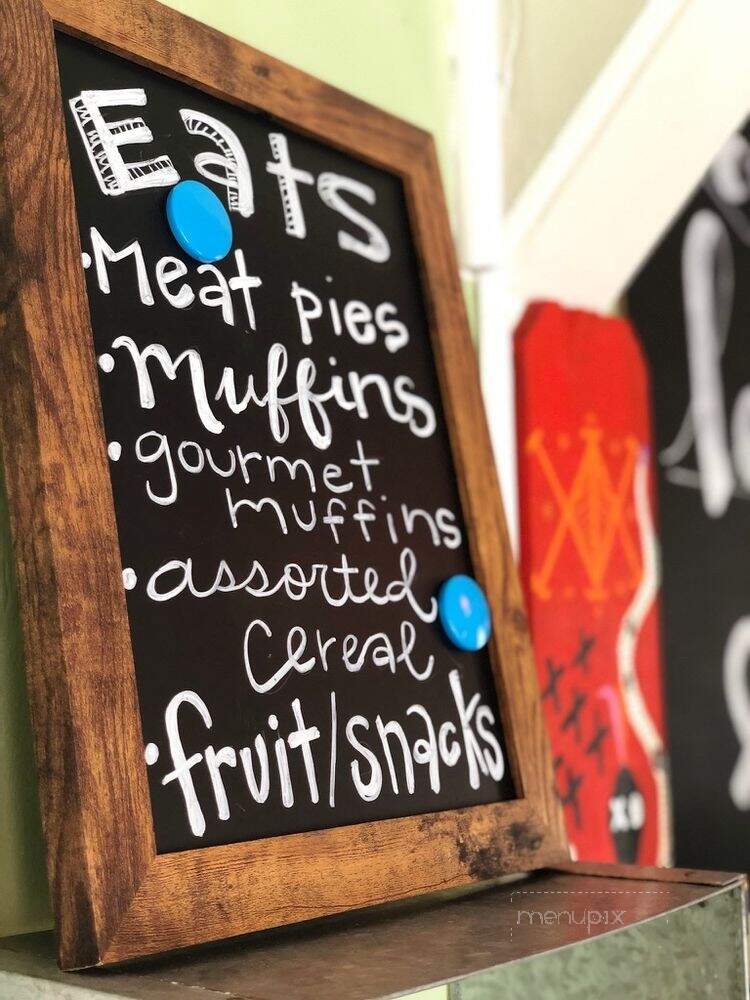 Eats
·Meat pies
·Muffins
·gourmet
muffins
·assorted
Cereal
·fruit/snacks
XO
menupix